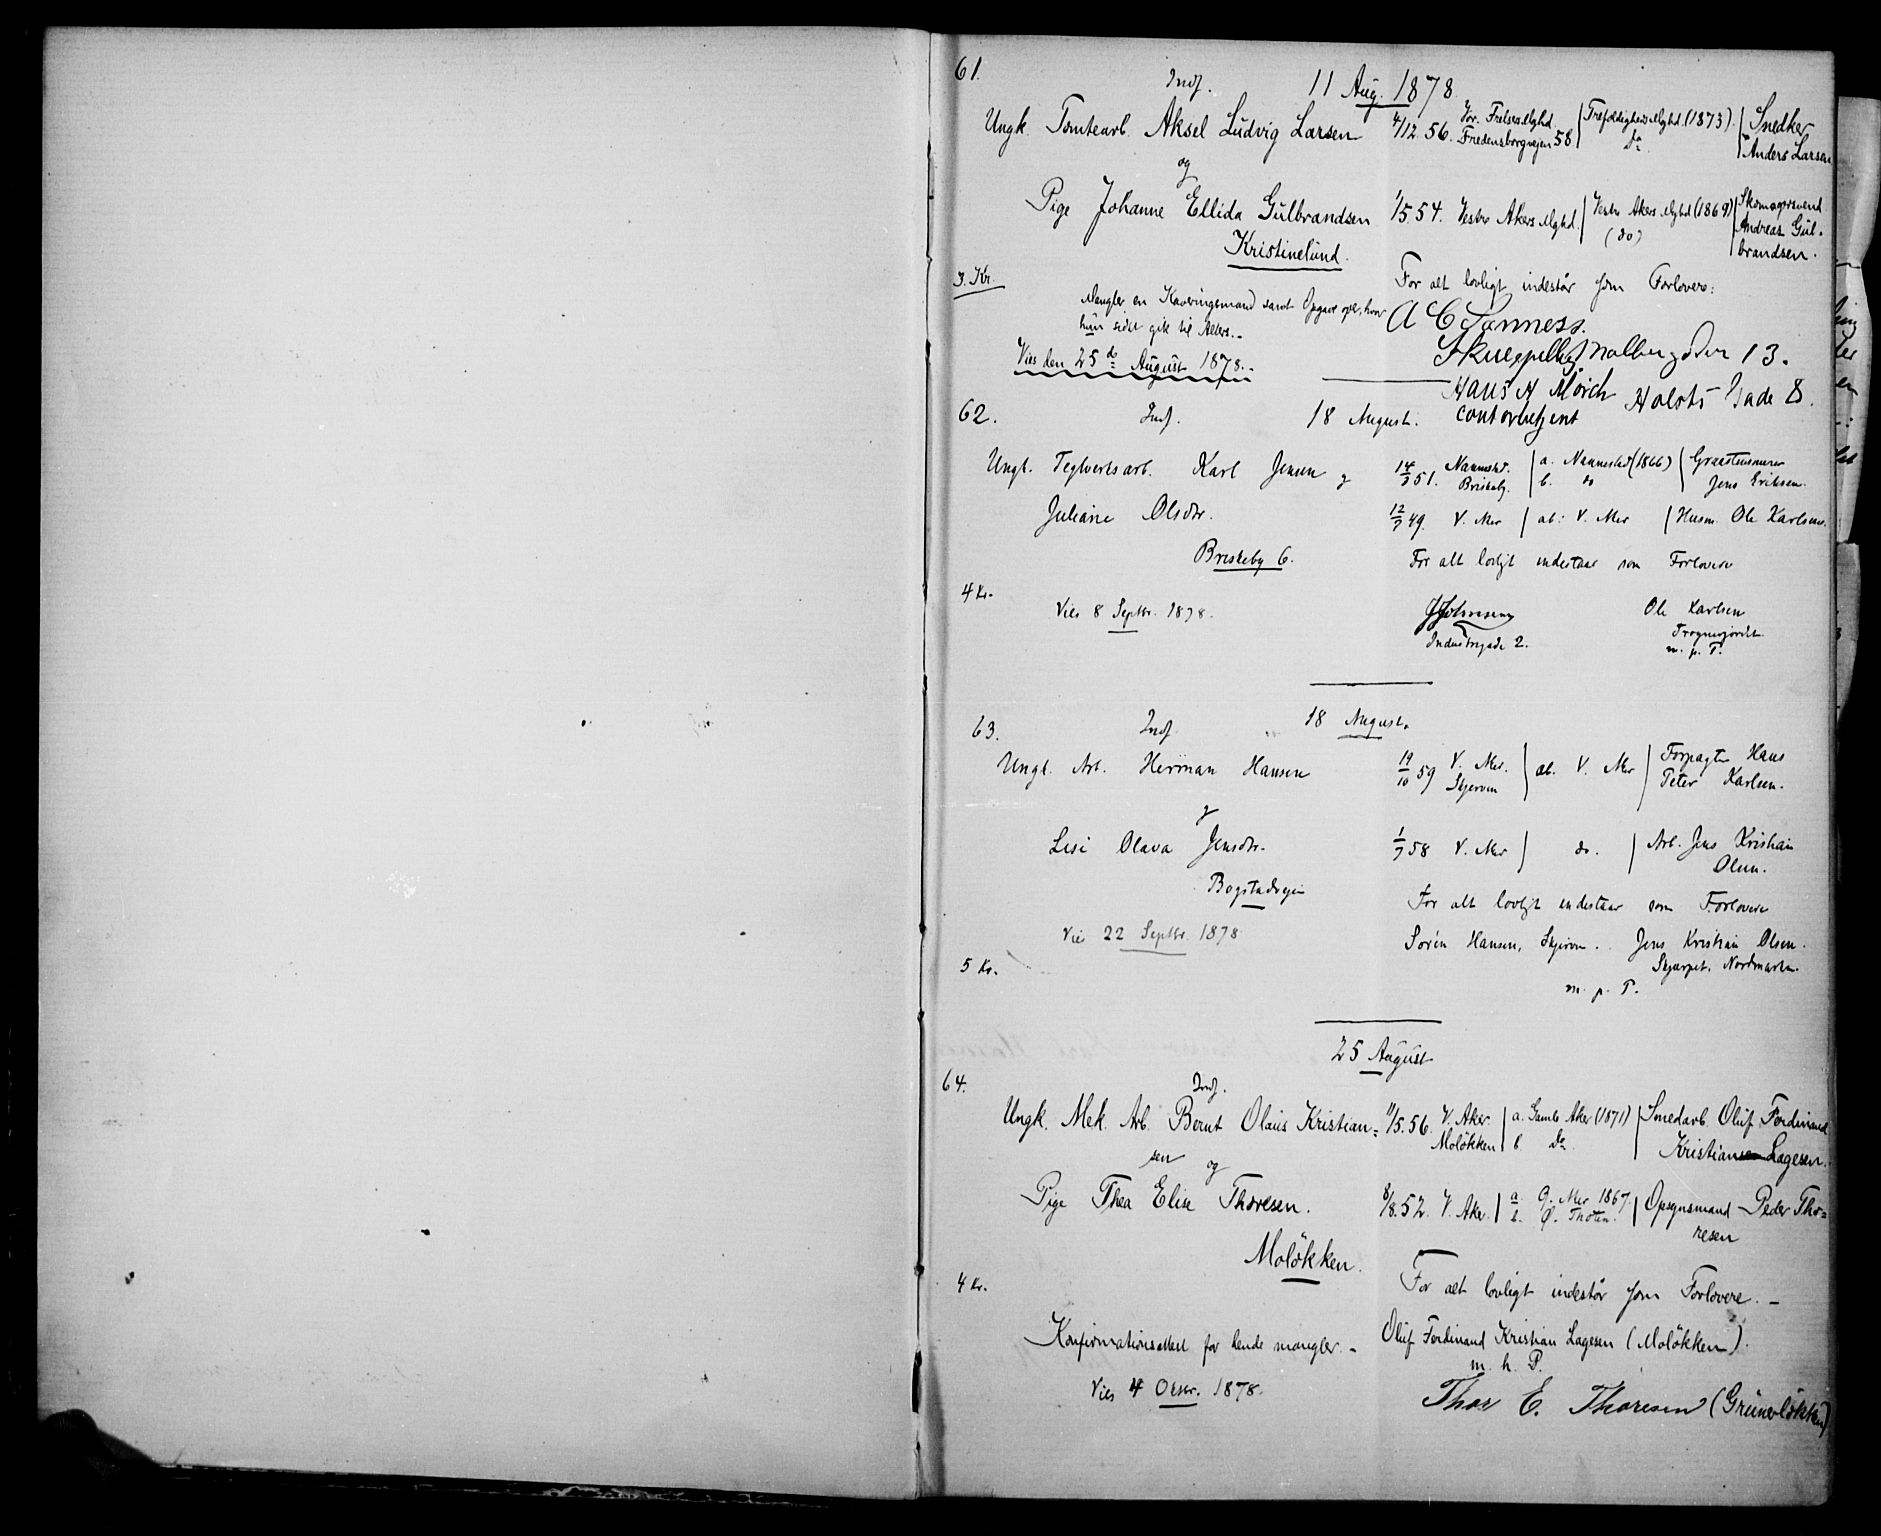 61.
Indf. 11 Aug. 1878
Ungk. Tomtearb. Aksel Ludvig Larsen 4/12.56. Vor Frelsers Mghd. Trefoldigheds Mghd. (1873). Snedker
Fredensborgvejen 58. do Anders Larsen
og
Pige Johanne Ellida Gulbrandsen 1/5.54. Vestre Akers Mghd. Vestre Akers Mghd (1869) Skomagersvend
(do) Andreas Gul-
Kristinelund. brandsen.
3. Kr. For alt lovligt indestår som Forlovere:
Mangler en Kaveringsmand samt Opgave over, hvor
hun sidst gik til Alters.-
A C Sanness.
Vies den 25de August 1878.- 13.
Hans H Mørch Holsts Gade 8.
contorbetjent
62. Indf. 18 August.
Ungk. Teglverksarb. Karl Jensen og 14/3 51. Nannestad. a. Nannestad (1866) Graastensmurer
Briskeby. b. do Jens Eriksen.
Juliane Olsdtr. 12/9 49. V. Aker ab: V. Aker Husm. Ole Karlsen.
Briskeby 6. For alt lovligt indestaar som Forlovere
4 Kr.
Vies 8 Septbr. 1878. Ole Karlsen
Industrigade 2. m. p. P.
63. Indf. 18 August.
Ungk. Arb. Herman Hansen 19/10 59 V. Aker. ab. V. Aker Forpagter Hans
Skjerven Peter Karlsen.
og
Lise Olava Jensdtr. 1/7 58 V. Aker do. Arb. Jens Kristian
Olsen.
Bogstadvejen
For alt lovligt indestaar som Forlovere
Vies 22 Septbr. 1878
Sørén Hansen, Skjerven. Jens Kristian Olsen.
5 Kr. Nordmarken.
m. p. P.
25 August
64. Indf.
Ungk. Mek. Arb. Bernt Olaus Kristian= 11/5.56. V. Aker. a. Gamle Aker (1871) Smedarb. Oluf Ferdinand
Moløkken b. do Kristiansen Lagesen.
sen og
Pige Thea Elise Thoresen. 8/8.52. V. Aker. a. G. Aker 1867 Opsynsmand Peder Tho=
b. Ø. Thoten. resen
Moløkken.
4 Kr. For alt lovligt indestår som Forlovere.-
Konfirmationsattest for hende mangler.- Oluf Ferdinand Kristian Lagesen (Moløkken).
m. h. P.
Vies 4 Oktbr. 1878. Thor E. Thoresen (Grünerløkken)